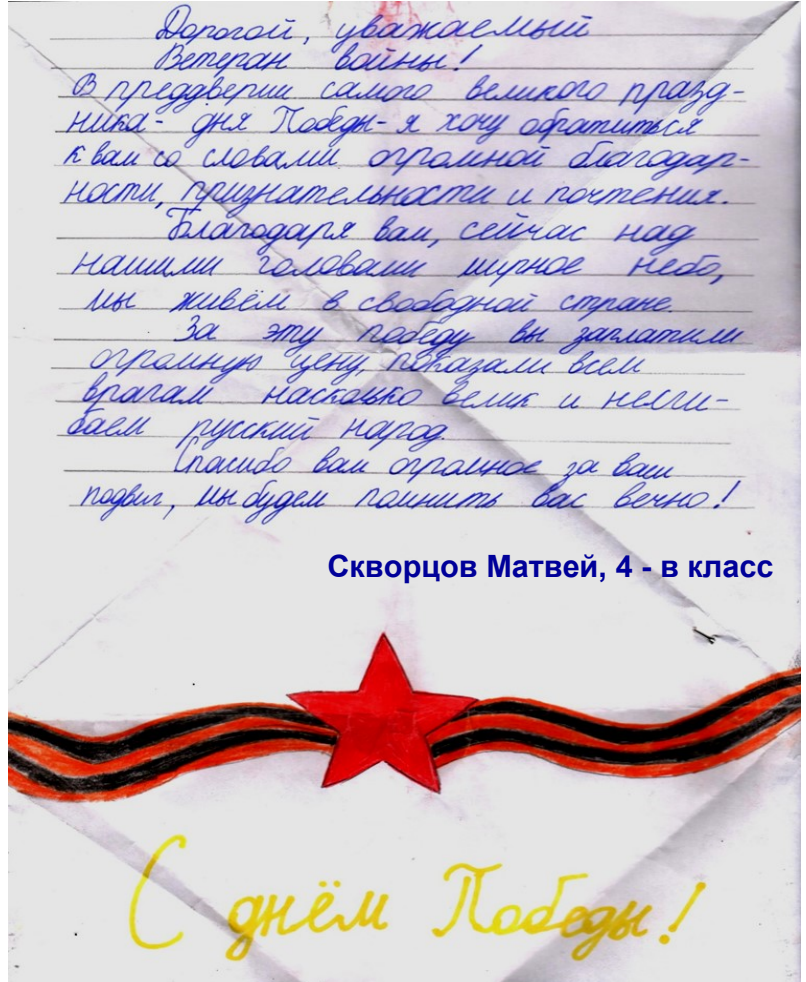 Дорогой, уважаемый
Ветеран войны!
В преддверии самого великого празд-
ника - дня Победы - я хочу обратиться
к вам со словами огромной благодар-
ности, признательности и почтения.
Благодаря вам, сейчас над
нашими головами мирное небо,
мы живём в свободной стране.
За эту победу вы заплатили
огромную цену, показали всем
врагам насколько велик и несги-
баем русский народ.
Спасибо вам огромное за ваш
подвиг, мы будем помнить вас вечно!
Скворцов Матвей, 4 - в класс
С днём Победы!